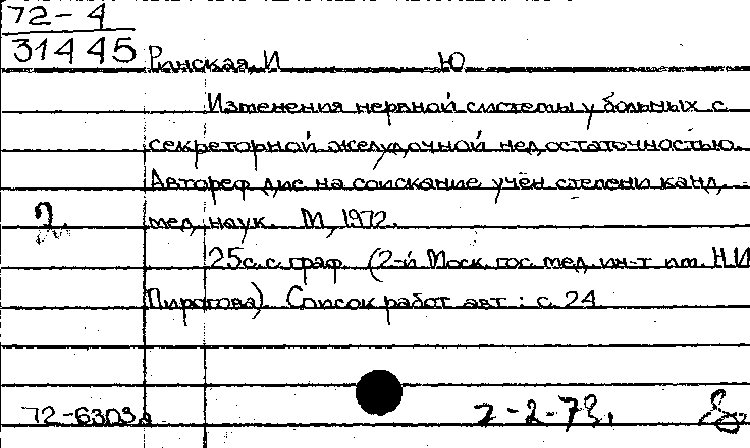 72-4
31445
Ринская, И Ю
Изменения нервной системы у больных с
секреторной желудочной недостаточностью.
Автореф дис. на соискание учен степени канд,
мед, наук. М, 1972.
25с. с. граф. (2-й Моск. гос. мед. ин-т им. Н.И
Пирогова). Список работ авт : с. 24
72-6303а
2-2-73.